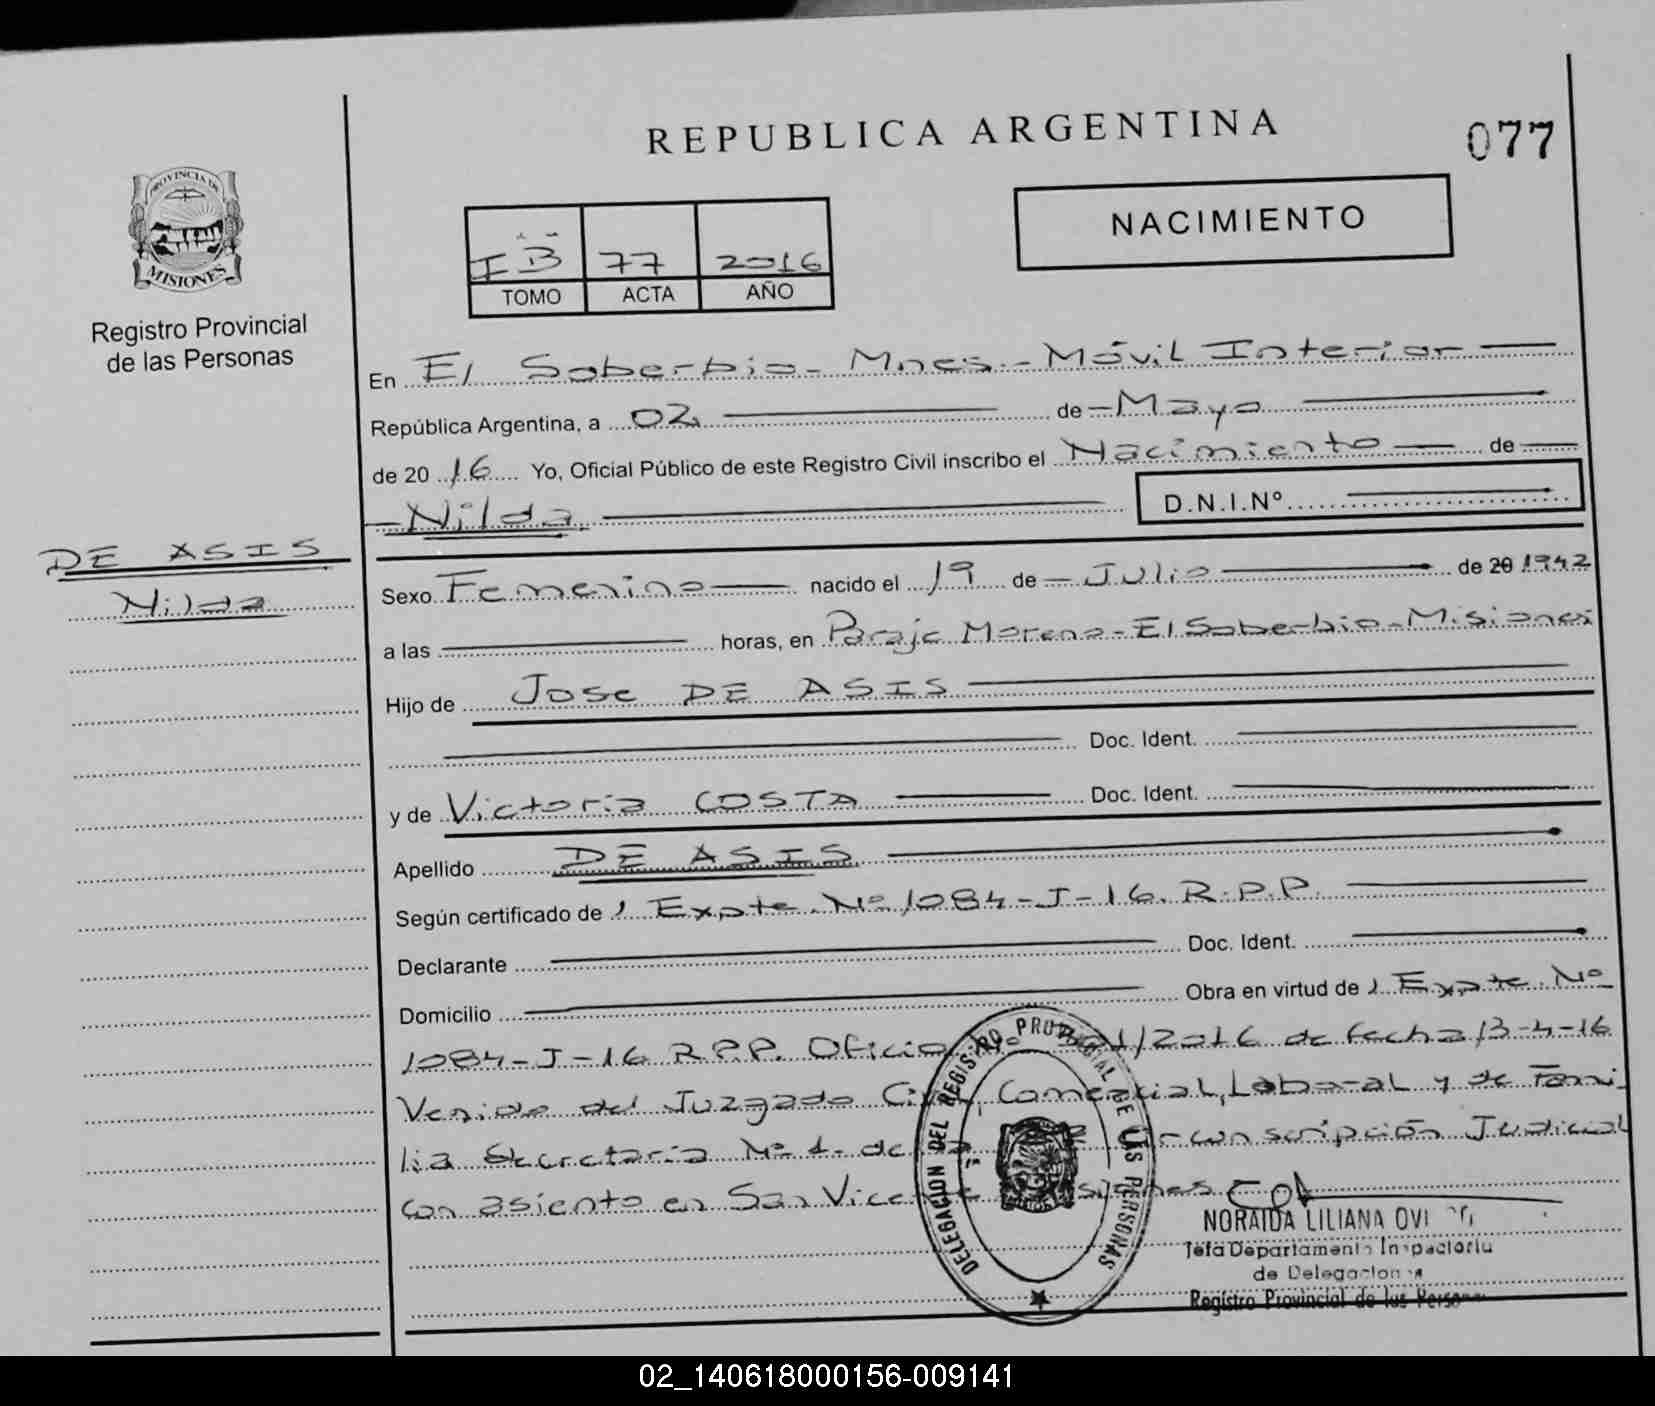 REPUBLICA ARGENTINA
077
PROVINCIA DE
MISIONES
Registro Provincial
de las Personas
NACIMIENTO
IB 77 2016
TOMO ACTA AÑO
En El Soberbio - Mnes. - Móvil Interior
República Argentina, a 02 de Mayo
de 2016 Yo, Oficial Público de este Registro Civil inscribo el Nacimiento de
Nilda D.N.I.Nº
DE ASIS
Nilda
Sexo Femenino nacido el 19 de Julio de 20 1942
a las horas, en Paraje Moreno - El Soberbio - Misiones
Hijo de Jose DE ASIS
Doc. Ident.
y de Victoria COSTA Doc. Ident.
Apellido DE ASIS
Según certificado de , Expte. Nº 1084-J-16. R.P.P.
Declarante Doc. Ident.
Domicilio Obra en virtud de , Expte. Nº
1084-J-16 R.P.P. Oficio /2016 de fecha 13-4-16
Venido del Juzgado Civil, Comercial, Laboral y de Fami
lia Secretaría Nº 1. de Circunscripción Judicial
con asiento en San Vicente Misiones
DELEGACION DEL REGISTRO PROVINCIAL DE LAS PERSONAS
NORAIDA LILIANA
Jefa Departamento Inspectoria
de Delegaciones
Registro Provincial de las Personas
02_140618000156-009141